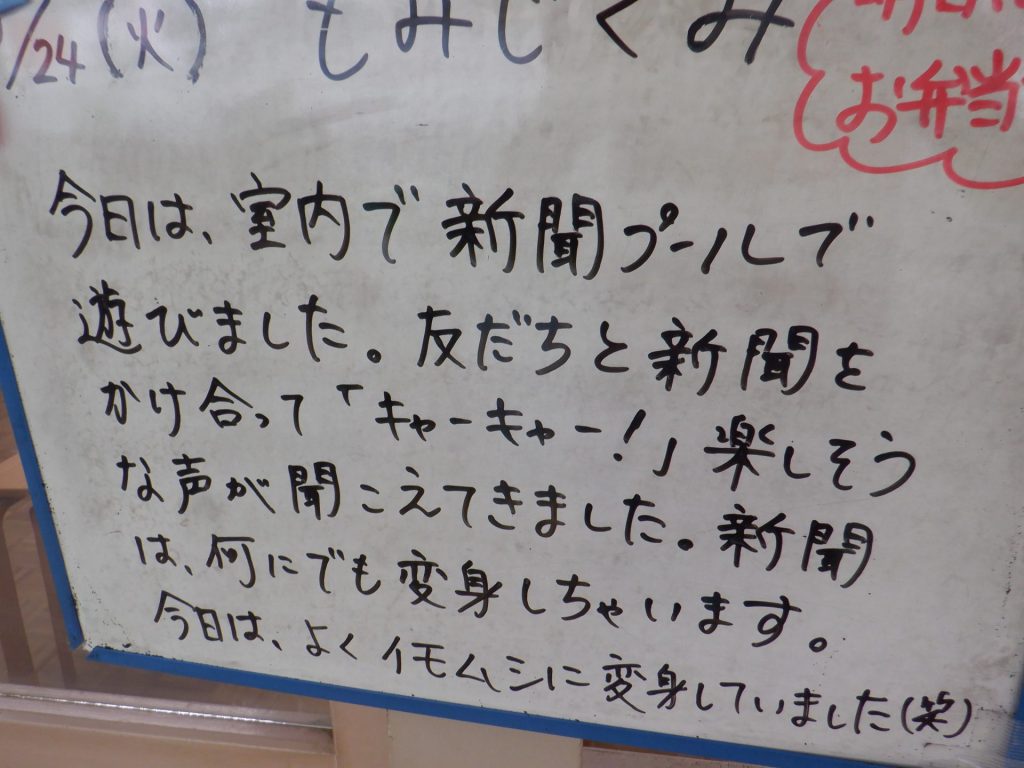 /24(火) もみじくみ
お弁当
今日は、室内で新聞プールで
遊びました。友だちと新聞を
かけ合って「キャーキャー!」楽しそう
な声が聞こえてきました。新聞
は、何にでも変身しちゃいます。
今日は、よくイモムシに変身していました(笑)